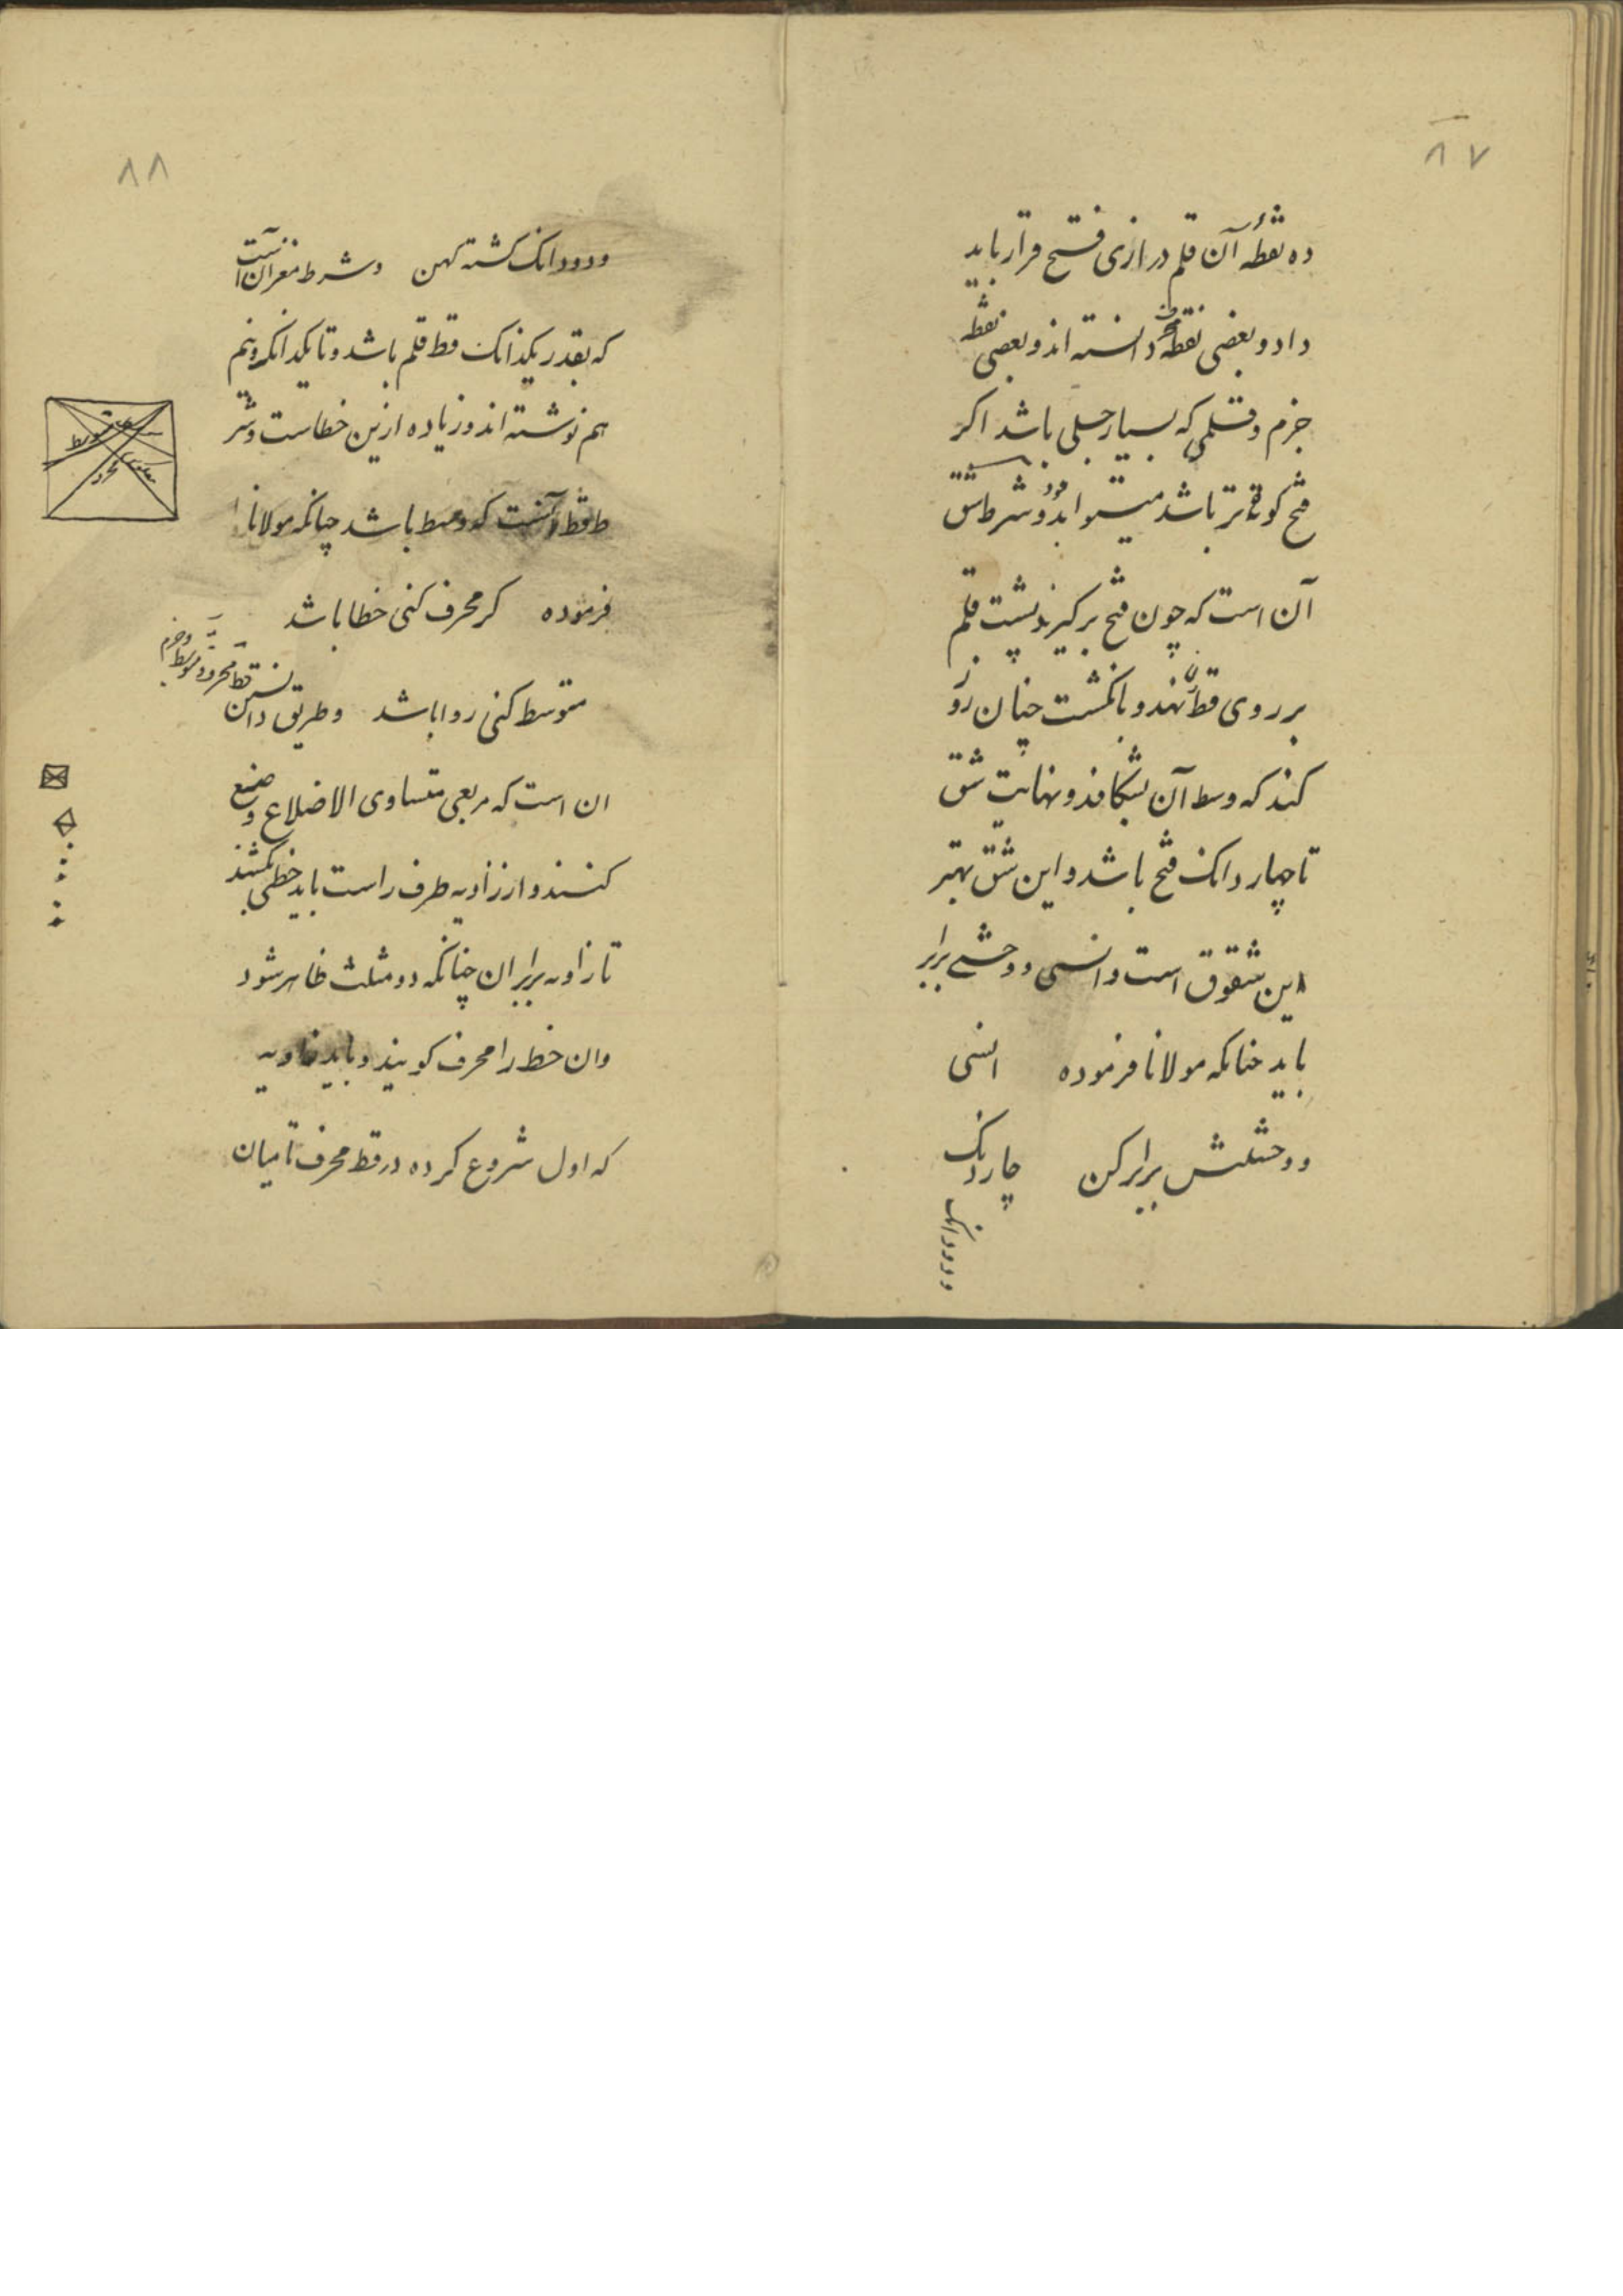 ۸۷
ده نقطه آن قلم درازی فتح قرار باید
داد و بعضی نقطه دانسته اند و بعضی نقطه
جزم و قلمی که بسیار جلی باشد اکر
فتح کوتاه تر باشد میتواند بود و شرط شق
آن است که چون فتح برکیرند پشت قلم
بر روی قط نهند و بانکشت چنان زور
کنند که وسط آن بشکافد و نهایت شق
تا چهار دانک فتح باشد و این شق بهتر
این شقوق است و انسی و وحشی برابر
باید چنانکه مولانا فرموده انسی
و وحشیش برابر کن چار دانک
و دو دانک
۸۸
و دو دانک کشته کهن و شرط مغز ان آنست
که بقدر یکدانک قط قلم باشد و تا یکدانک و نیم
هم نوشته اند و زیاده ازین خطاست و شر
ط قط آنست که وسط باشد چنانکه مولانا
فرموده کر محرف کنی خطا باشد
متوسط کنی روا باشد و طریق دانستن
قط محرف و متوسط و جزم
ان است که مربعی متساوی الاضلاع وضع
کنند و از زاویه طرف راست باید خطی کشند
تا زاویه برابر ان چنانکه دو مثلث ظاهر شود
وان خط را محرف کویند و باید زاویه
که اول شروع کرده در قط محرف تا میان